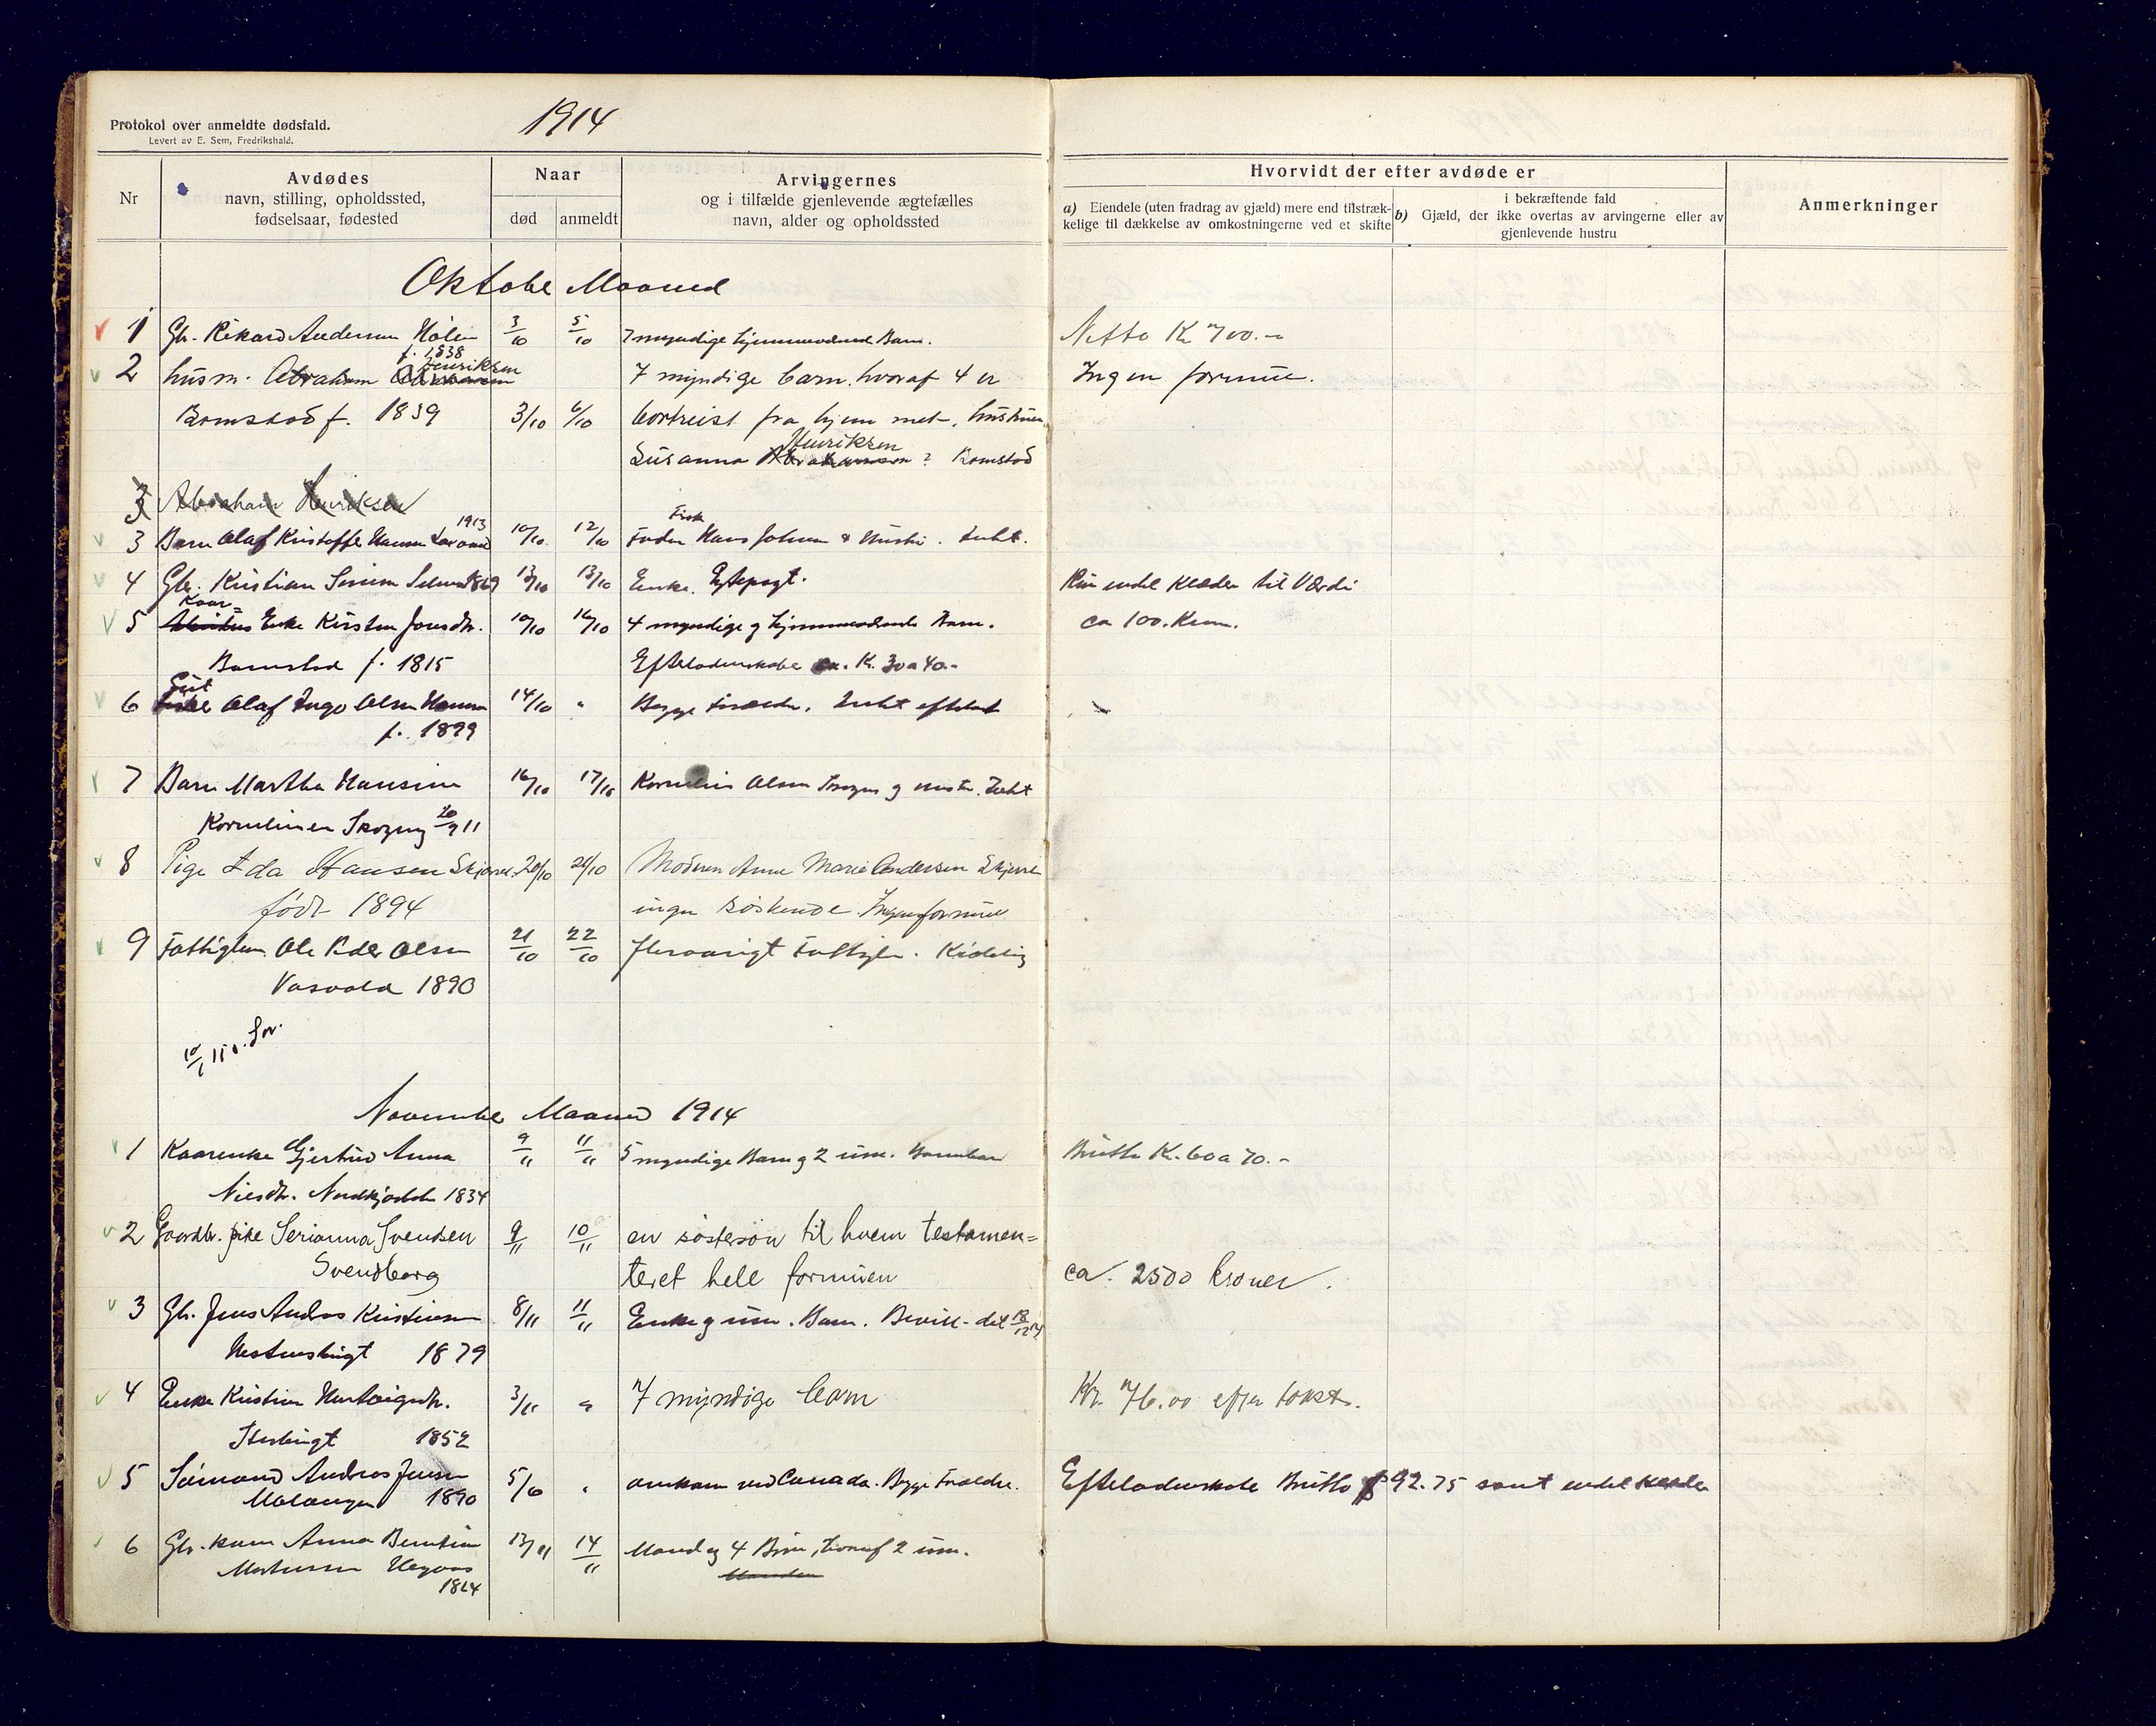 1914
Protokol over anmeldte dødsfald.
Levert av E. Sem, Fredrikshald.
Nr
Avdødes
navn, stilling, opholdssted,
fødselsaar, fødested
Naar
død
anmeldt
Arvingernes
og i tilfælde gjenlevende ægtefælles
navn, alder og opholdssted
Hvorvidt der efter avdøde er
a) Eiendele (uten fradrag av gjæld) mere end tilstræk-
kelige til dækkelse av omkostningerne ved et skifte
i bekræftende fald
b) Gjæld, der ikke overtas av arvingerne eller av
gjenlevende hustru
Anmerkninger
Oktober Maaned
1 Gbr. Rikard Andersen Holen 3/10 5/10 7 myndige hjemmeværende Barn. Netto Kr 700.-
f. 1838
2 husm. Abraham Henriksen 7 myndige barn, hvoraf 4 er Ingen formue.
Bomstad f. 1839 3/10 6/10 bortreist fra hjemmet, hustruen
Susanna Henriksen Bomstad
3 Abraham Henriksen
3 Barn Olaf Kristoffer Hansen 1913 10/10 12/10 Fader Fisk Hans Johnsen & Hustru. Intet.
4 Gbr. Kristian 1869 13/10 13/10 Enke. Kun endel Klæder til Værdi
5 Kaar= Enke Kirsten Jonsdtr. 10/10 16/10 4 myndige g hjemmeværende Barn. ca 100. Kron.
Bomstad f. 1815 Efterladenskaber ca. K. 30 a 40.-
6 Gut Olaf Inge Olsen Hamn 14/10 " Begge Forældre. Intet efterladt
f. 1899
7 Barn Martha Hansine 16/10 17/10 Kornelius Olsen Skogeng g hustr. Intet
Korneliusen Skogeng 20/9 11
8 Pige Ida Hansen Skjervø. 20/10 21/10 Moderen Anne Marie Andersen Skjervø
født 1894 ingen søskende. Ingen formue
9 Fattiglem Ole Peder Olsen 21/10 22/10 fleraarigt Fattiglem.
1890
10/1 15
November Maaned 1914
1 Kaarenke Gjertrud Anna 9/11 11/11 5 myndige Barn g 2 um. Barnebarn Brutto K. 60 a 70.-
Nilsdtr. 1834
2 Gaardbr. pike Serianna Svendsen 9/11 10/11 en søstersøn til hvem testamen=
Svendborg teret hele formuen ca. 2500 kroner.
3 Gb. Jens Andreas Kristiansen 8/11 11/11 Enke g um. Barn. Bevill-det 18/12 14
1879
4 Enke Kristine Hartvigsdtr. 3/11 " 7 myndige barn Kr. 76.00 efter takst.
1852
5 Sømand Andreas Jensen 5/6 " omkom ved Canada. Begge Forældre. Efterladenskab Brutto $92.75 samt endel Klæder
Malangen 1890
6 Gbr. kone Anna Berntine 13/11 14/11 Mand og 4 Børn, hvoraf 2 um.